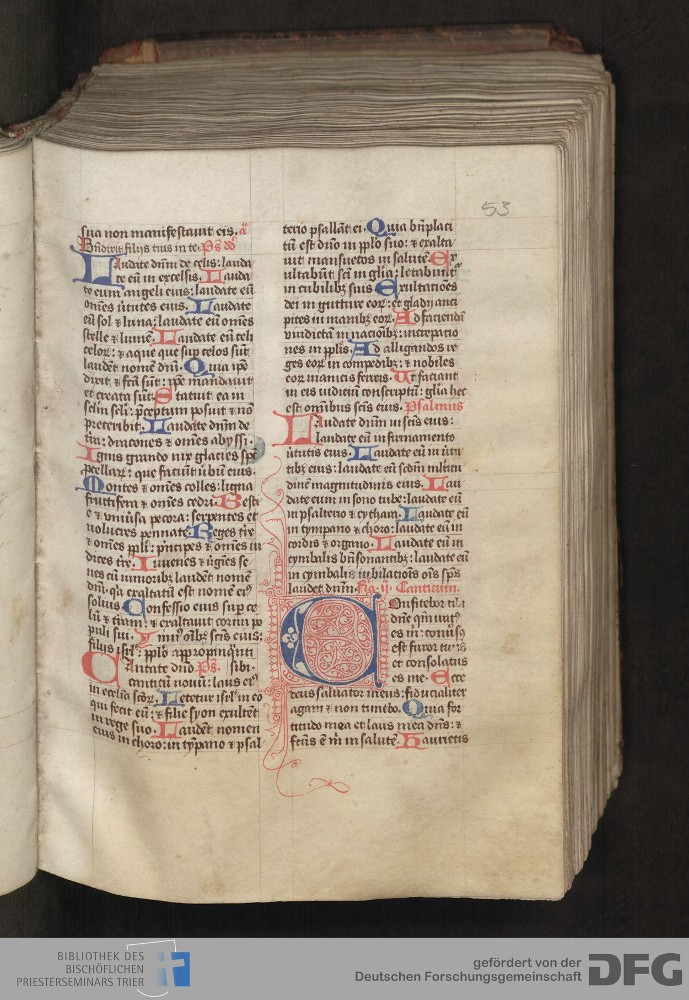 53
sua non manifestauit eis. a
Bñdixit filijs tuis in te. Ps dd
Laudate dñm de celis: lauda
te eũ in excelsis. Lauda
te eum angeli eius: laudate eũ
omẽs ũtutes eius. Laudate
eũ sol ⁊ luna: laudate eũ omẽs
stelle ⁊ lumẽ. Laudate eũ celi
celoꝝ: ⁊ aque que sup celos sũt
laudẽt nomẽ dñi. Quia ipẽ
dixit ⁊ fc̃a sũt: ipẽ mandauit
et creata sũt. Statuit ea in
sclm̃ scli: p̃ceptum posuit ⁊ nõ
preteribit. Laudate dñm de
t̃ra: dracones ⁊ omẽs abyssi.
Ignis grando nix glacies spc̃
p̃cellaꝝ: que faciũt ũbũ eius.
Montes ⁊ omẽs colles: ligna
fructifera ⁊ omẽs cedri. Besti
e ⁊ vniũsa pecora: serpentes et
volucres pennate. Reges tr̃e
⁊ omẽs ppl̃i: p̃ncipes ⁊ omẽs iu
dices tr̃e. Iuuenes ⁊ ũgĩes se
nes cũ iuniorib; laudẽt nomẽ
dñi: qa exaltatũ est nomẽ ei9
solius. Confessio eius sup ce
lũ ⁊ t̃ram: ⁊ exaltauit cornu po
puli sui. Ymn9 oĩb; scĩs eius:
filijs isrl̃: pplõ appropinq̃nti
Cantate dño Ps. sibi.
canticũ nouũ: laus ei9
in ecclĩa scõꝝ. Letetur isrl̃ in eo
qui fecit eũ: ⁊ filie syon exultẽt
in rege suo. Laudẽt nomen
eius in choro: in tỹpano ⁊ psal
terio psallãt ei. Quia bñplaci
tũ est dño in pplõ suo: ⁊ exalta
uit mansuetos in salutẽ. Ex
ultabũt scĩ in gl̃ia: letabunt
in cubilib; suis. Exultatiões
dei in gutture eoꝝ: et gladij anci
pites in manib; eoꝝ. Ad faciendã
vindictã in naciõib;: increpatio
nes in pplĩs. Ad alligandos re
ges eoꝝ in compedib;: ⁊ nobiles
eoꝝ in manicis ferreis. Ut faciant
in eis iudiciũ conscriptũ: gl̃ia hec
est omĩbus scĩs eius. Psalmus
Laudate dñm in scĩs eius:
laudate eũ in firmamento
ũtutis eius. Laudate eũ in ũtu
tib; eius: laudate eũ scdm̃ mltitu
dinẽ magnitudinis eius. Lau
date eum in sono tube: laudate eũ
in psalterio ⁊ cytham. Laudate eũ
in tympano ⁊ choro: laudate eũ in
cordis ⁊ organo. Laudate eũ in
cymbalis bñsonantib;: laudate eũ
in cymbalis iubilatiõis: oĩs sps̃
laudet dñm. Canticum.
Confitebor tibi
dñe qm̃ irat9
es m̃: conũs9
est furor tuus
et consolatus
es me. Ecce
deus saluator meus: fiducialiter
agam ⁊ non timebo. Quia for
titudo mea et laus mea dñs: ⁊
fc̃us ẽ m̃ in salutẽ. Haurietis
BIBLIOTHEK DES
BISCHÖFLICHEN
PRIESTERSEMINARS TRIER
gefördert von der
Deutschen Forschungsgemeinschaft
DFG